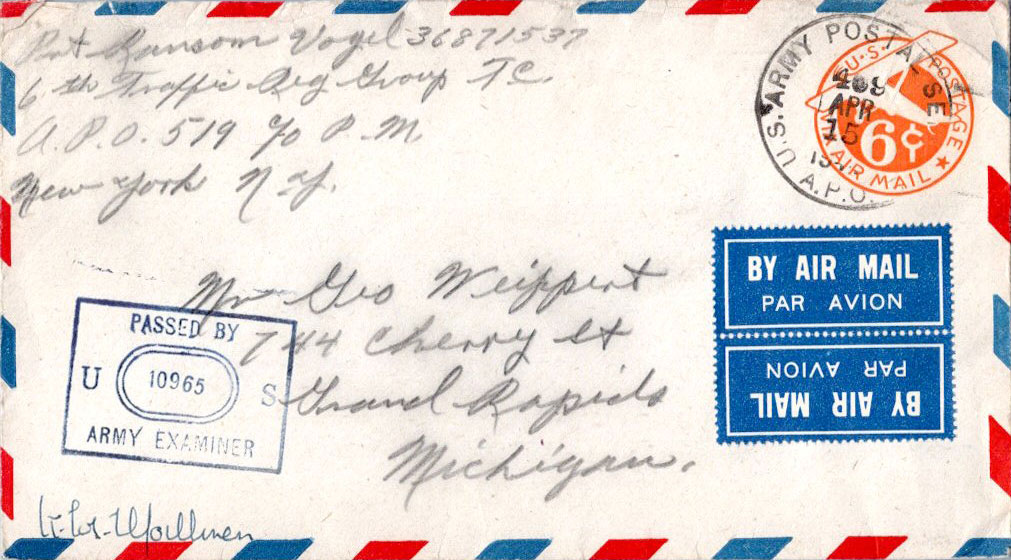 Pvt Ransom Vogel 36871537
6th Traffic Reg Group T.C.
A.P.O. 519 c/o P.M
New York N.Y.
U.S. ARMY POSTAL SER
A.P.O.
APR
15
U.S. POSTAGE
6¢
VIA AIR MAIL
BY AIR MAIL
PAR AVION
BY AIR MAIL
PAR AVION
Mr Geo Weippert
744 Cherry St
Grand Rapids
Michigan.
PASSED BY
U 10965 S
ARMY EXAMINER